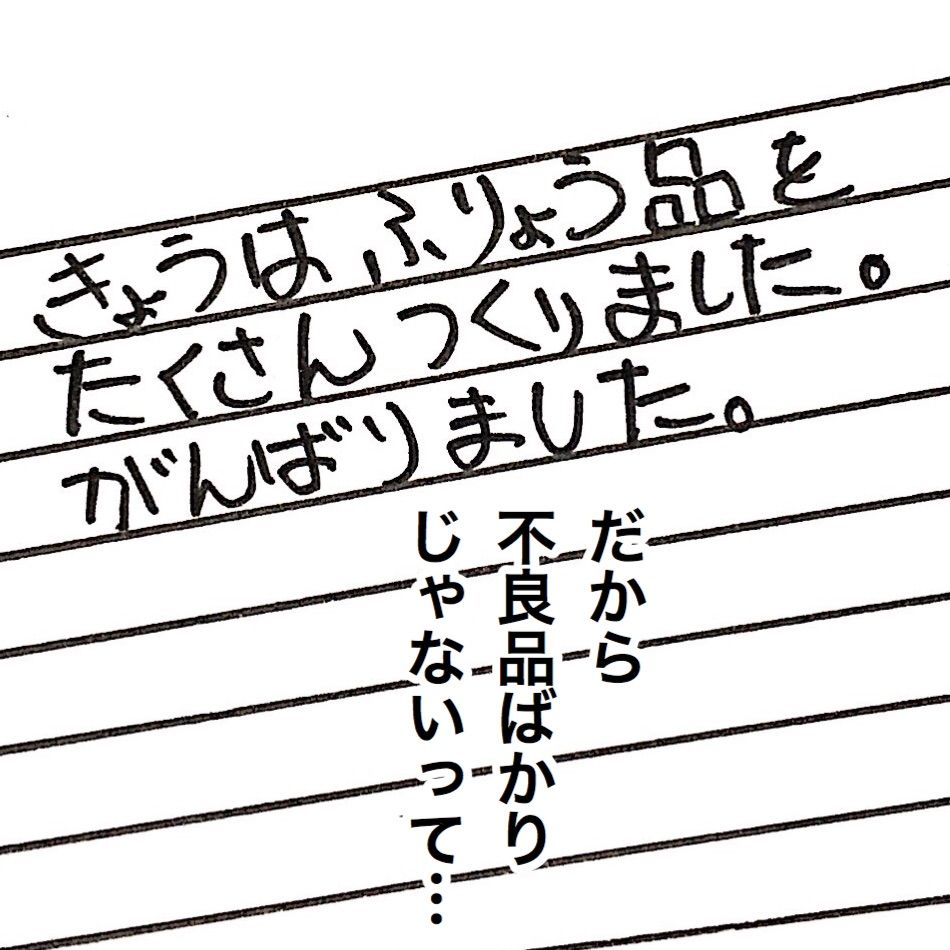 きょうはふりょう品を
たくさんつくりました。
がんばりました。
だから
不良品ばかり
じゃないって…